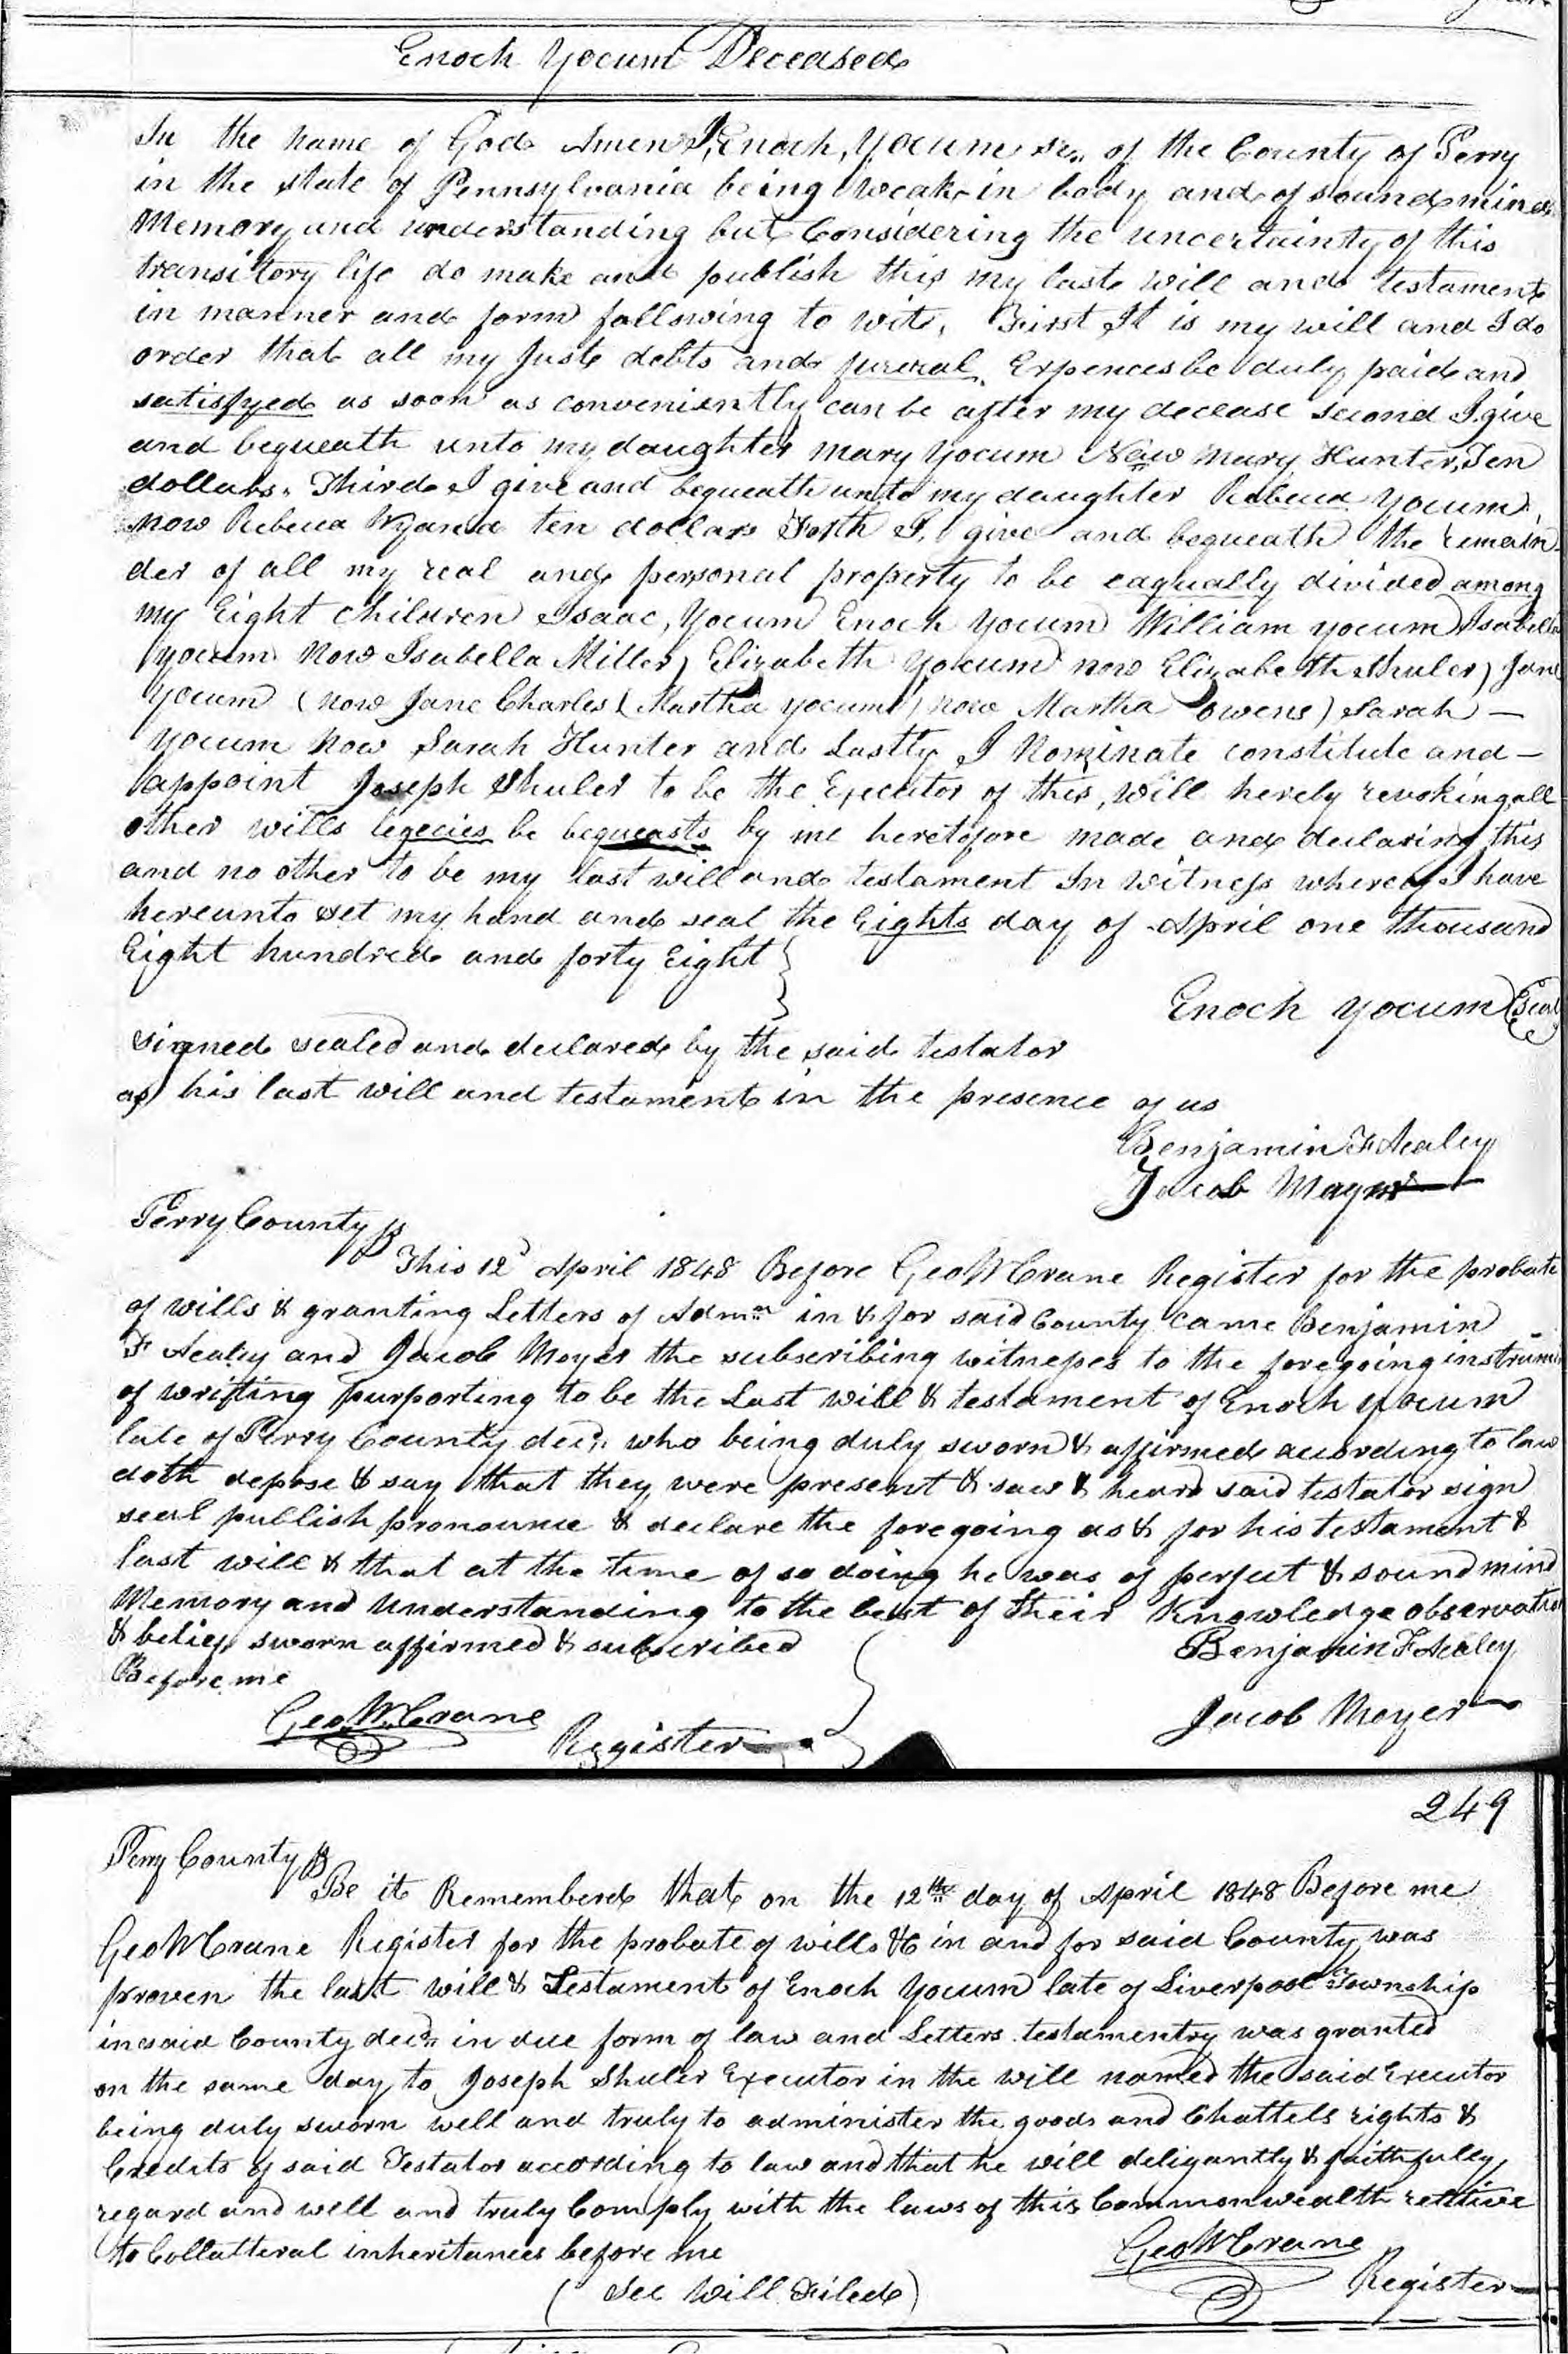 Enoch Yocum Deceased
In the name of God Amen I, Enoch, Yocum sr., of the County of Perry
in the state of Pennsylvania being weak in body and of sound mind
Memory and understanding but Considering the uncertainty of this
transitory life do make and publish this my last will and testament
in manner and form following to wit, First It is my will and I do
order that all my Just debts and funeral Expences be duly paid and
satisfyed as soon as conveniently can be after my decease second I give
and bequeath unto my daughter mary Yocum Now mary Hunter, Ten
dollars. Third I give and bequeath unto my daughter Rebecca Yocum
now Rebecca ten dollars Forth I, give and bequeath the remain
der of all my real and personal property to be eaqually divided among
my Eight children Isaac, Yocum Enoch Yocum William yocum Isabella
yocum Now Isabella Miller) Elizabeth Yocum now Elizabeth Shuler) Jane
Yocum (now Jane Charles (Martha yocum) now Martha owens) Sarah —
Yocum Now Sarah Hunter and Lastly I Nominate constitute and —
appoint Joseph Shuler to be the Executor of this, will hereby revoking all
other wills legecies be bequeasts by me heretofore made and declaring this
and no other to be my last will and testament In witness whereof I have
hereunto set my hand and seal the Eights day of April one thousand
Eight hundred and forty Eight
Enoch Yocum (Seal)
signed sealed and declared by the said testator
as his last will and testament in the presence of us
Benjamin F Aealey
Jacob Mayer
Perry County ss
This 12th April 1848 Before Geo W Crane Register for the probate
of wills & granting Letters of Admn in & for said County came Benjamin
F Aealey and Jacob Moyer the subscribing witnesses to the foregoing instrum
of writting purporting to be the Last will & testament of Enoch Yocum
late of Perry County decd. who being duly sworn & affirmed according to law
doth depose & say that they were present & saw & heard said testator sign
seal publish pronounce & declare the foregoing as & for his testament &
last will & that at the time of so doing he was of perfect & sound mind
Memory and Understanding to the best of their Knowledge observation
& belief sworn affirmed & subscribed
Benjamin F Aealey
Before me
Geo. W. Crane
Register
Jacob Moyer
249
Perry County ss
Be it Rememberd that on the 12th day of April 1848 Before me
Geo W Crane Register for the probate of wills &c in and for said County was
proven the last will & Testament of Enoch Yocum late of Liverpool Township
in said County decd. in due form of law and Letters testamentry was granted
on the same day to Joseph Shuler Executor in the will named the said Executor
being duly sworn well and truly to administer the goods and Chattels rights &
Credits of said Testator according to law and that he will deligantly & faithfully
regard and well and truly Comply with the laws of this Commonwealth relitive
to Collatteral inheritances before me
Geo W Crane
Register
(See Will Filed)